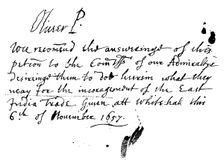 Oliver P.
Wee recomend the answeringe of this
petition to the Com^rs of our Admiralty
desiringe them to doe herein what they
may for the incouragement of the East
India trade Given att Whitehall this
6th of November 1657.